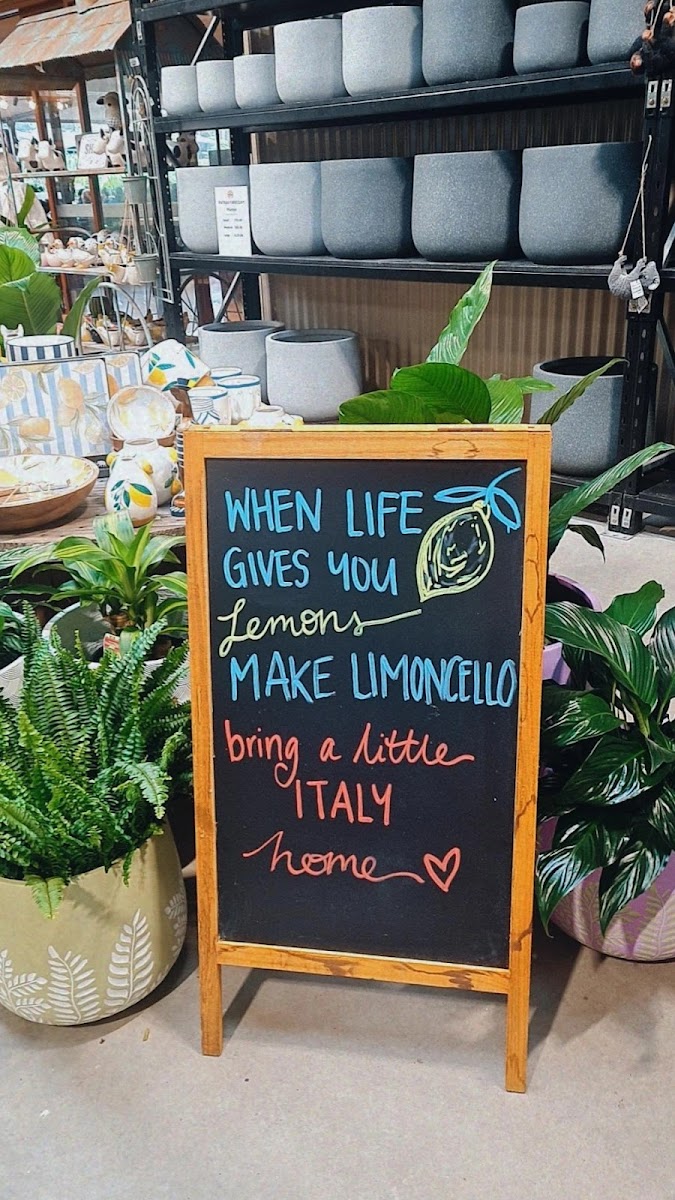 WHEN LIFE
GIVES YOU
Lemons
MAKE LIMONCELLO
bring a little
ITALY
home